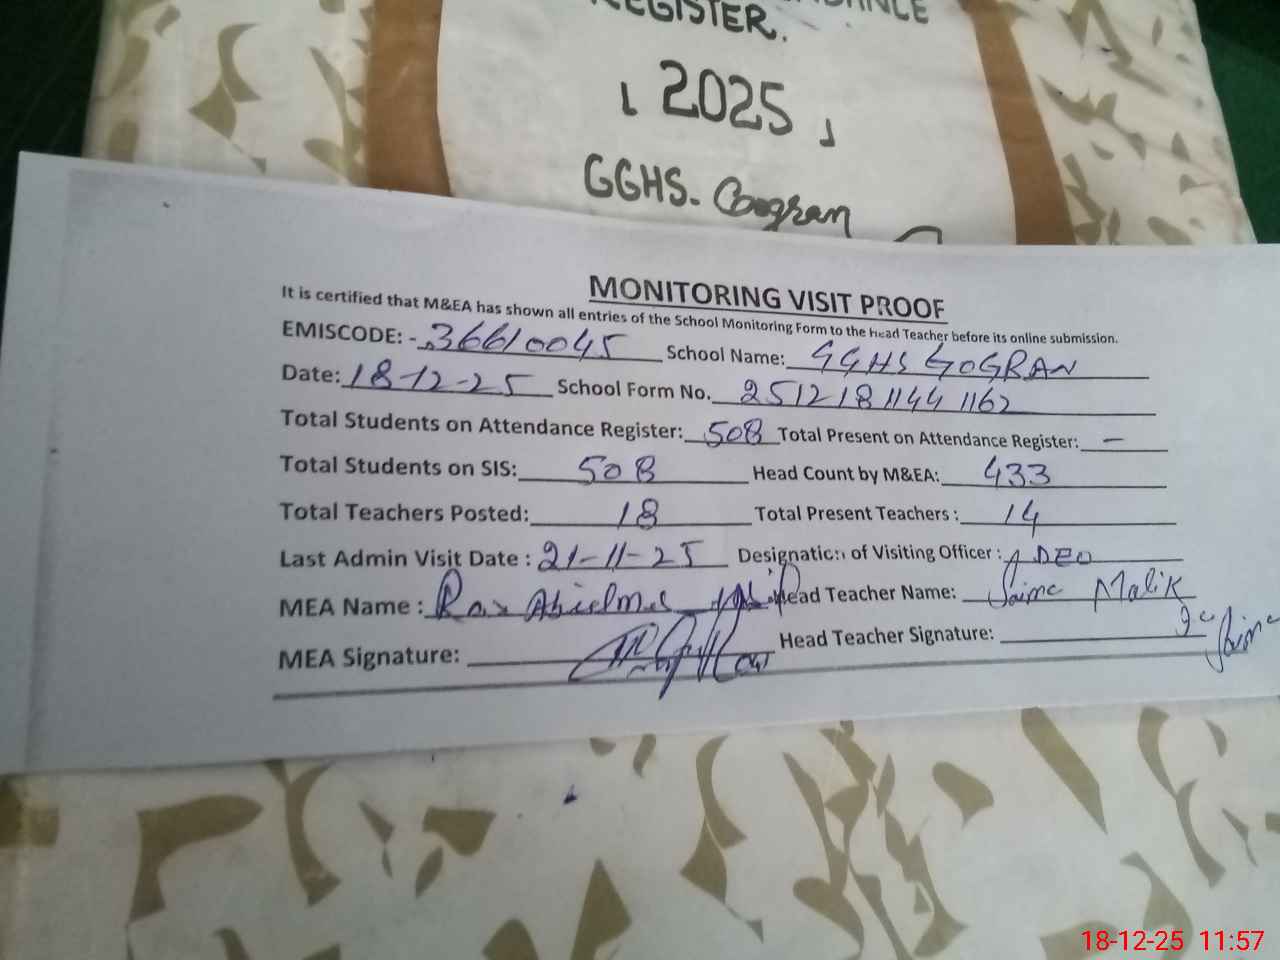 REGISTER.
2025
GGHS. Googran
MONITORING VISIT PROOF
It is certified that M&EA has shown all entries of the School Monitoring Form to the Head Teacher before its online submission.
EMISCODE: - 36610045 School Name: GGHS GOGRAN
Date: 18-12-25 School Form No. 2512181144 1162
Total Students on Attendance Register: 508 Total Present on Attendance Register: -
Total Students on SIS: 508 Head Count by M&EA: 433
Total Teachers Posted: 18 Total Present Teachers : 14
Last Admin Visit Date : 21-11-25 Designation of Visiting Officer : ADEO
MEA Name : Head Teacher Name: Saima Malik
MEA Signature: Head Teacher Signature:
18-12-25 11:57